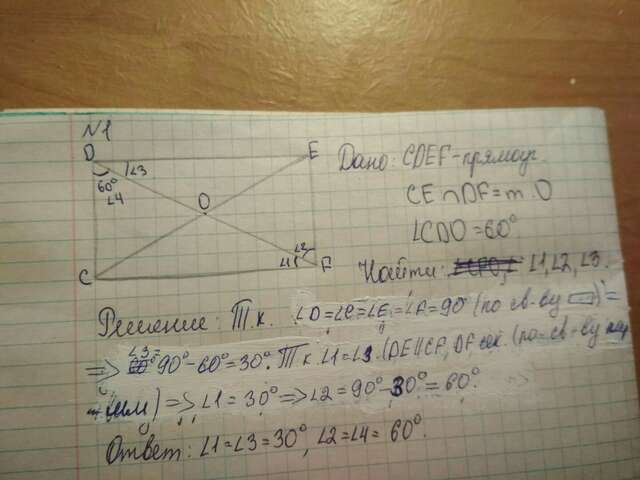 N1
D
∠3
60°
∠4
O
E
C
∠1
∠2
F
Дано: CDEF - прямоуг.
CE ∩ DF = т. O
∠CDO = 60°
Найти: ∠1, ∠2, ∠3.
Решение: Т.к. ∠D = ∠C = ∠E = ∠F = 90° (по св-ву ▭) =
=> ∠3 = 90° - 60° = 30°. Т.к ∠1 = ∠3 (DE || CF, DF сек. (по св-ву пар
=> ∠1 = 30° => ∠2 = 90° - 30° = 60°.
Ответ: ∠1 = ∠3 = 30°, ∠2 = ∠4 = 60°.